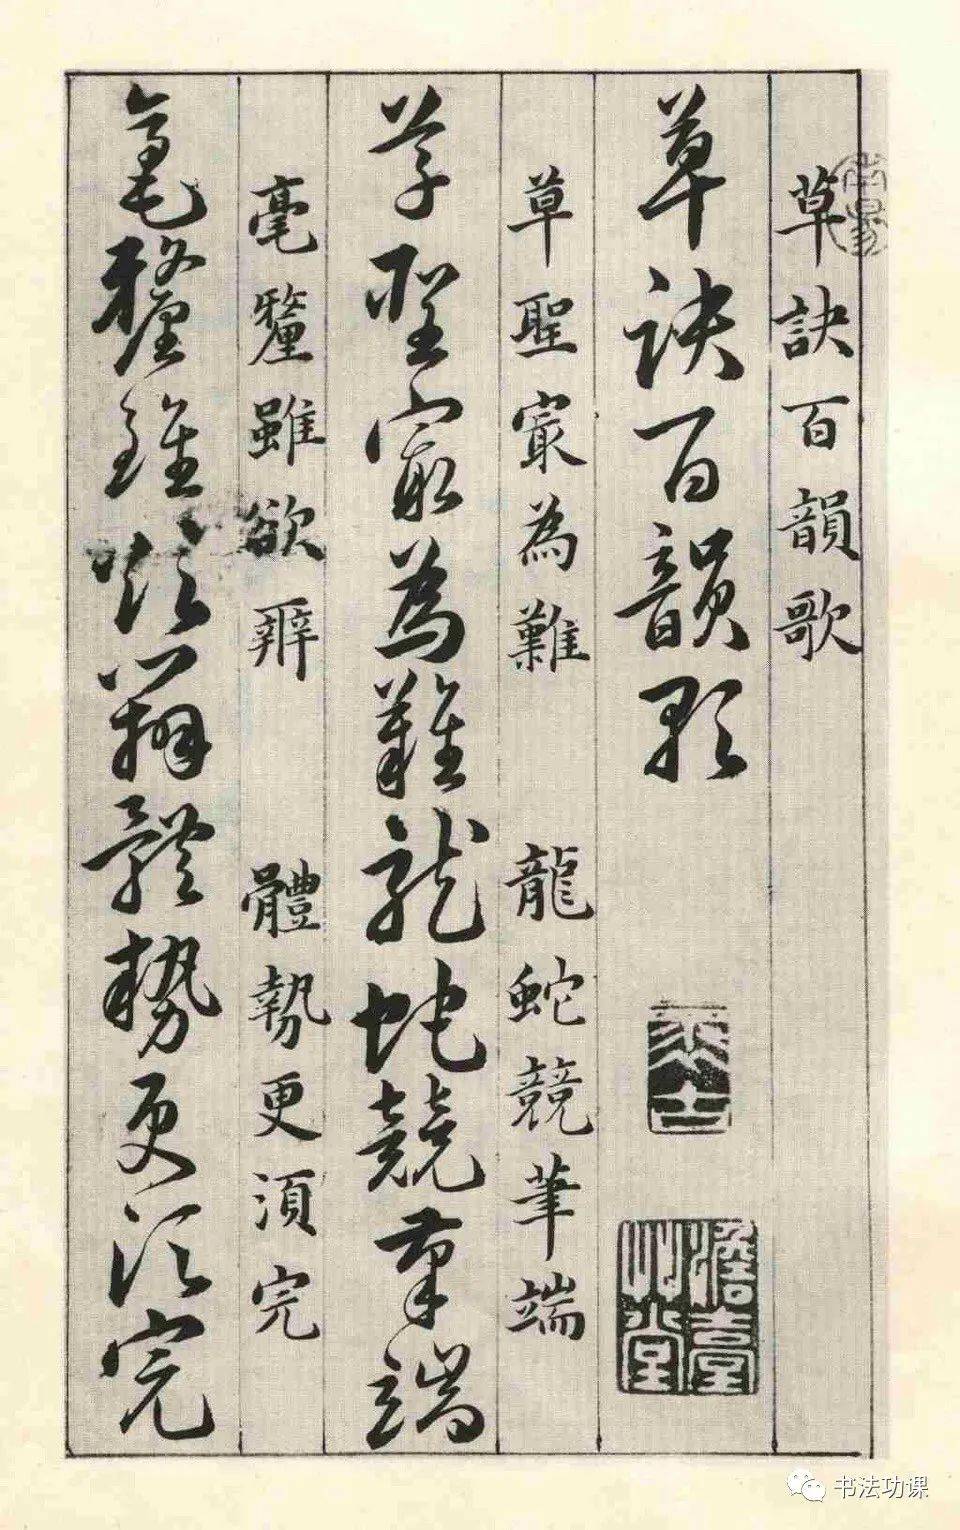 草訣百韻歌
草訣百韻歌
草聖冣為難 龍蛇競筆端
草聖冣為難龍蛇競筆端
毫釐雖欲辨 體勢更須完
毫釐雖欲辨體勢更須完
书法功课